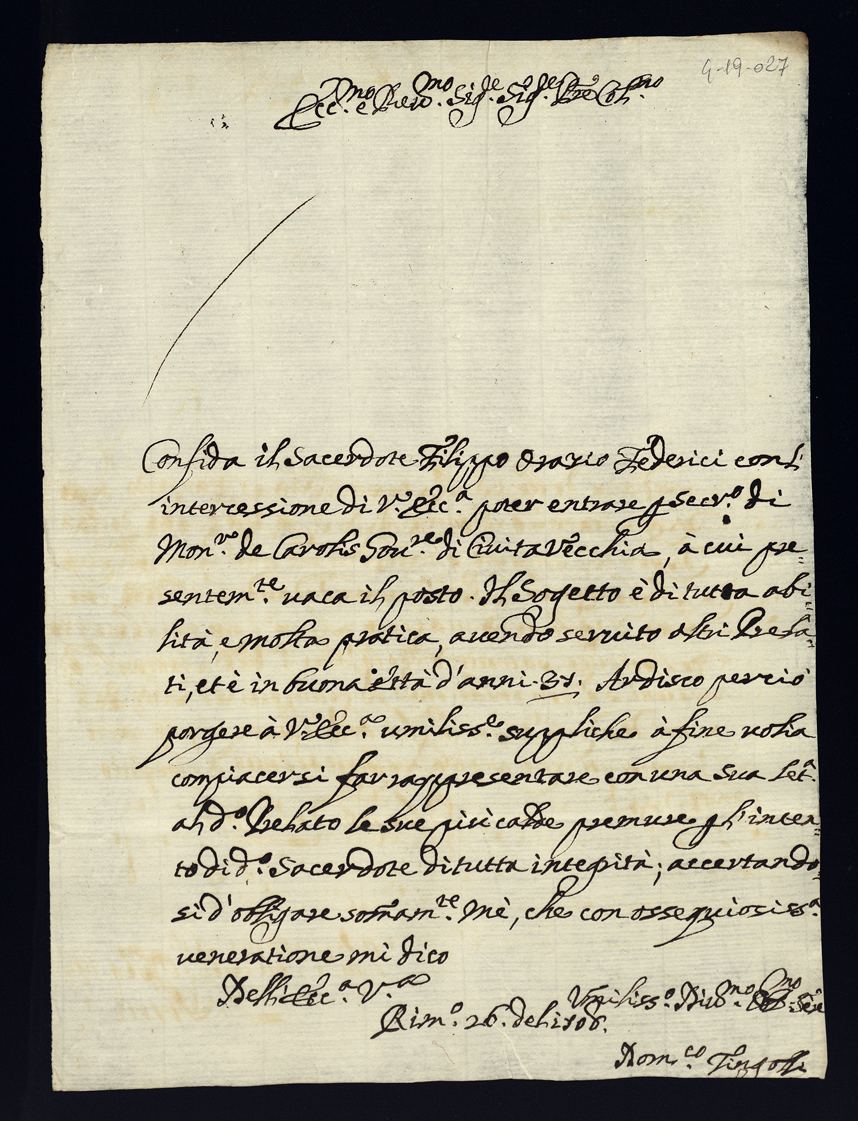 4-19-027
Ecc.mo e Rev.mo Sig.re Sig.re Pre Col.mo
Confida il Sacerdote Filippo Orazio Federici con l
intercessione di V.ra Ecc.a poter entrare p Secr.o di
Mon.re de Carolis Gov.re di Civita Vecchia, à cui pre=
sentem.te vaca il posto. Il Sogetto è di tutta abi=
lità, e molta pratica, avendo servito altri Prela=
ti, et è in buona età d'anni 31. Ardisco perciò
porgere à V.ra Ecc.a umiliss.e suppliche à fine voglia
compiacersi far rappresentare con una sua let.a
al d.o Prelato le sue più calde premure p l'inten=
to di d.o Sacerdote di tutta integrità; accertando=
si d'obligare somam.te mè, che con ossequiosiss.a
veneratione mi dico
Dell'Ecc.a V.ra
Umiliss.o Div.mo Obb.mo Ser.e
Rim.o 26. del 1706.
Dom.co Tingoli